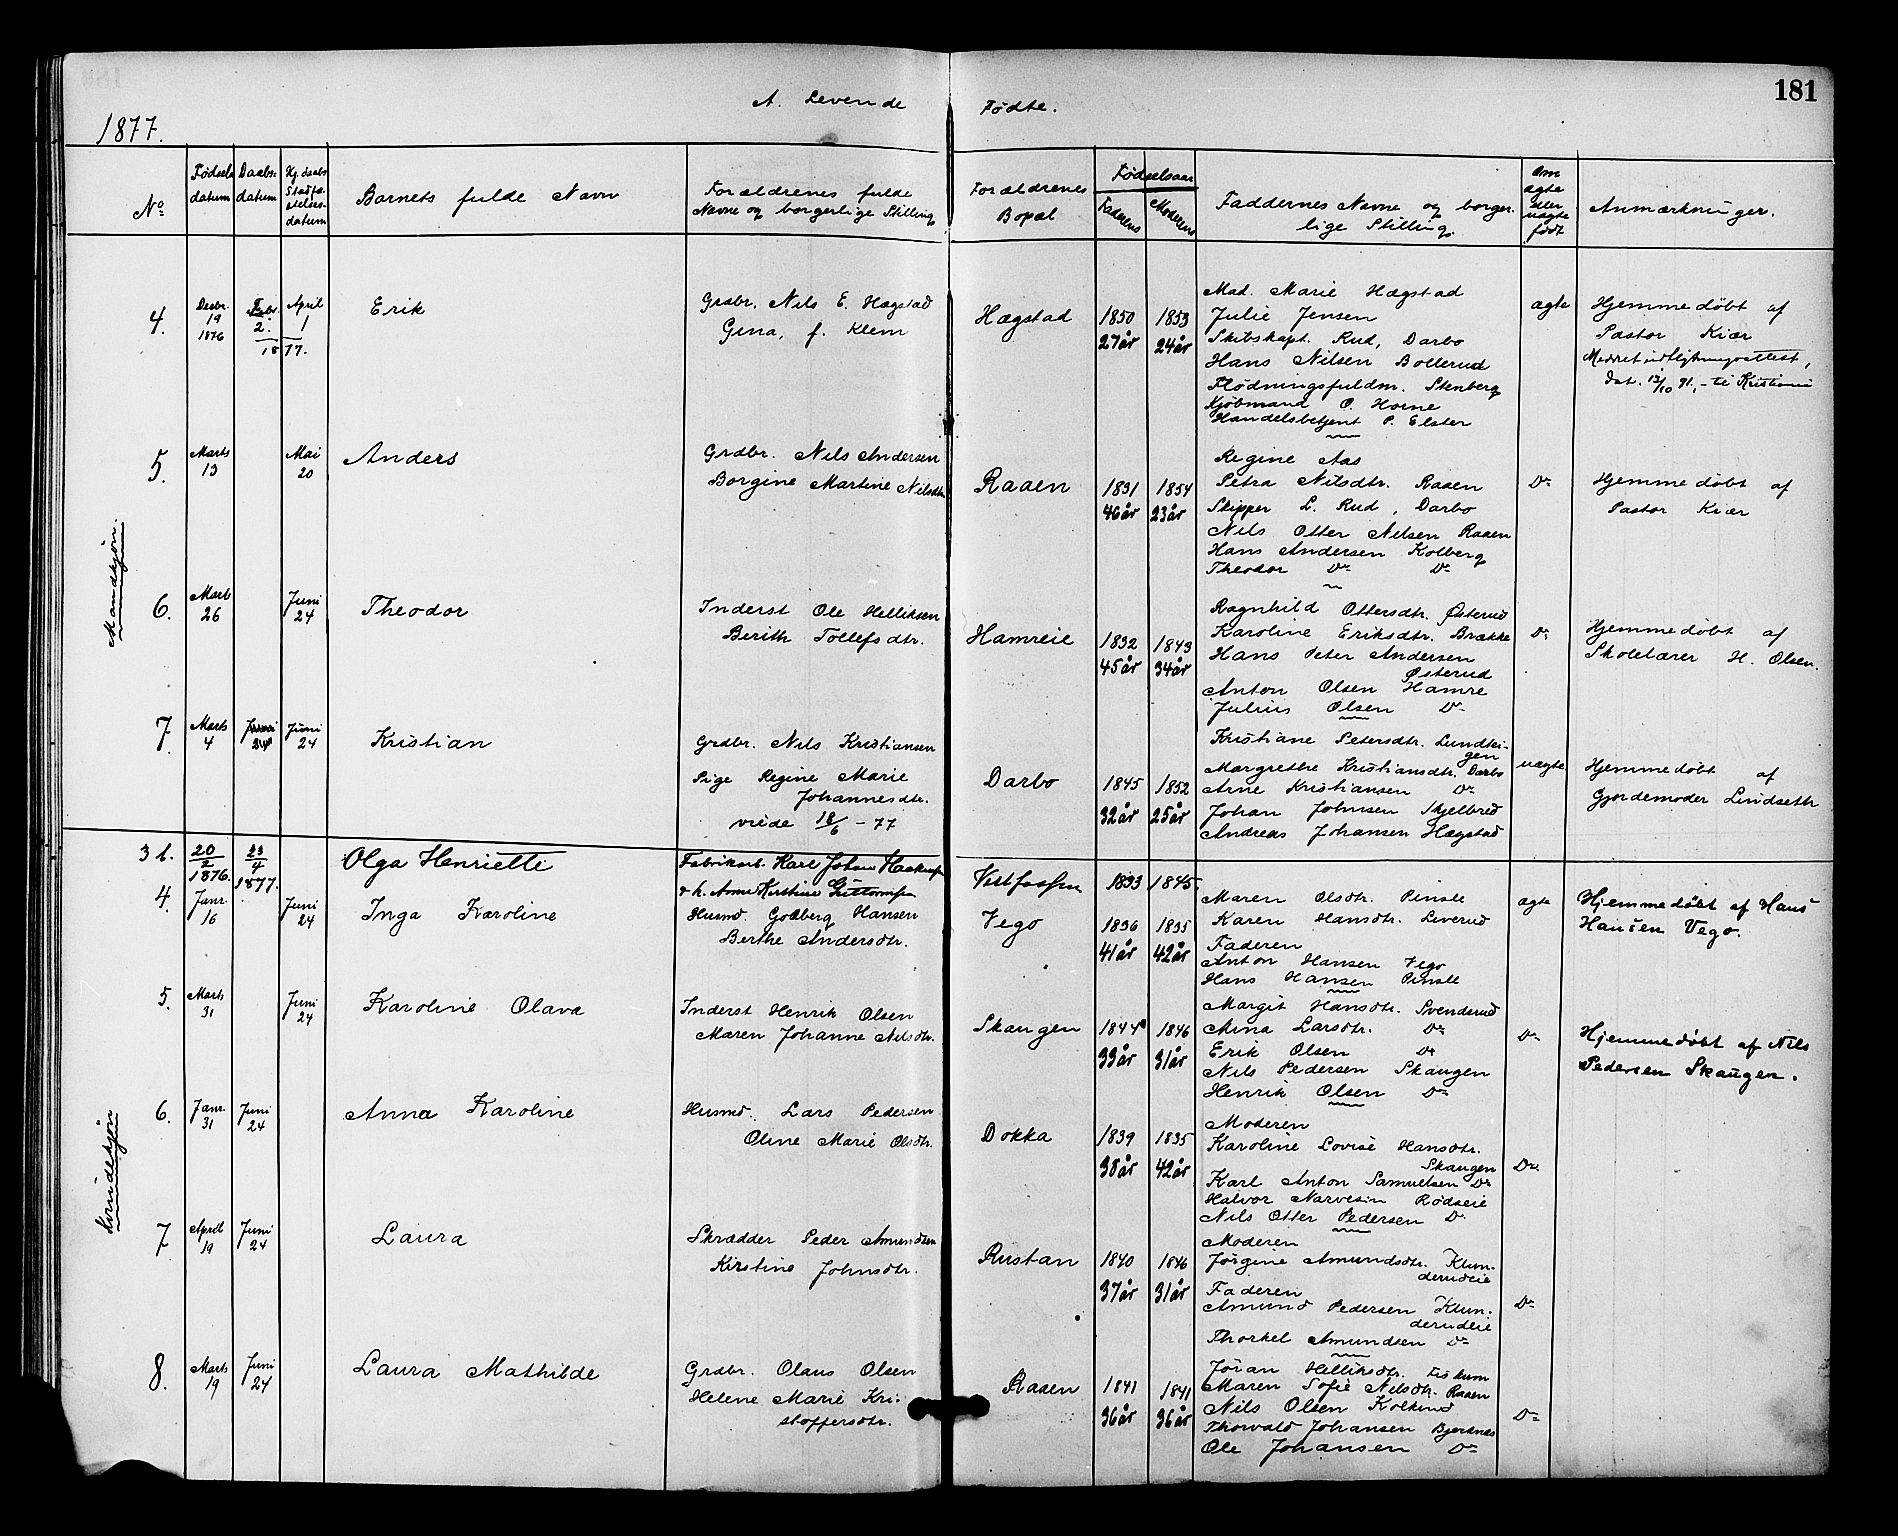 181
A. Levende Fødte.
1877.
No Fødsels datum Daabs- datum Hj. daabs Stadfæ- stelses- datum Barnets fulde Navn Forældrenes fulde Navne og borgerlige Stilling Forældrenes Bopæl Fødselsaar Faderens Moderens Faddernes Navne og borger- lige Stilling. Om ægte eller uægte født Anmærkninger.
Mandkjøn.
4. Decbr. 19 1876 Febr. 2. April 1 1877. Erik
Grdbr. Nils E. Hægstad
Gina, f. Klem
Hægstad 1850 1853
27år 24år
Mad. Marie Hægstad
Julie Jensen
Skibskapt. Rud, Darbo
Hans Nilsen Bollerud
Flödningsfuldm. Stenberg
Kjöbmand O. Horne
Handelsbetjent P. Elster
ægte
Hjemmedøbt af
Pastor Kiær
Meddelt udflytningsattest,
dat. 13/10 91, - til Kristiania
5. Marts 13 Mai 20 Anders
Grdbr. Nils Andersen
Borgine Martine Nilsdtr.
Raaen 1831 1854
46år 23år
Regine Aas
Petra Nilsdtr. Raaen
Skipper L. Rud, Darbo
Nils Otter Nilsen Raaen
Hans Andersen Kolberg
Theodor Do Do
Do
Hjemmedøbt af
Pastor Kiær
6. Marts 26 Juni 24 Theodor
Inderst Ole Helliksen
Berith Tollefsdtr.
Hamreie 1832 1843
45år 34år
Ragnhild Ottersdtr. Østerud
Karoline Eriksdtr. Brække
Hans Peter Andersen
Østerud
Anton Olsen Hamre
Julius Olsen Do
Do
Hjemmedøbt af
Skolelærer H. Olsen.
7. Marts 4 Juni 24 Juni 24 Kristian
Grdbr. Nils Kristiansen
Pige Regine Marie
Johannesdtr.
viede 18/6 - 77
Darbo 1845 1852
32år 25år
Kristiane Petersdtr. Lundtei-
gen
Margrethe Kristiansdtr. Darbo
Arne Kristiansen Do
Johan Johnsen Skjelbred
Andreas Johansen Hægstad
uægte
Hjemmedøbt af
Gjordemoder Lindseth
Kvindekjøn
3 b. 20/2 1876. 23/4 1877. Olga Henriette
Fabrikarb. Karl Johan
& h. Anne Kirstine Guttormsen
Vestfossen 1833 1845.
4. Janr. 16 Juni 24 Inga Karoline
Husmd. Golberg Hansen
Berthe Andersdtr.
Vego 1836 1835
41år 42år
Maren Olsdtr. Pinsle
Karen Hansdtr. Liverud
Faderen
Anton Hansen Vego
Hans Hansen Pinsle
ægte
Hjemmedøbt af Hans
Hansen Vego.
5. Marts 31 Juni 24 Karoline Olava
Inderst Henrik Olsen
Maren Johanne Nilsdtr.
Skaugen 1844 1846
33år 31år
Margit Hansdtr. Svenderud
Mina Larsdtr. Do
Erik Olsen Do
Nils Pedersen Skaugen
Henrik Olsen Do
Do
Hjemmedøbt af Nils
Pedersen Skaugen.
6. Janr. 31 Juni 24 Anna Karoline
Husmd. Lars Pedersen
Oline Marie Olsdtr.
Dokka 1839 1835
38år 42år
Moderen
Karoline Lovise Hansdtr.
Skaugen
Karl Anton Samuelsen Do
Halvor Narvesen Rødseie
Nils Otter Pedersen Do
Do
7 April 19 Juni 24 Laura
Skrædder Peder Amundsen
Kirstine Johnsdtr.
Rustan 1840 1846
37år 31år
Moderen
Jörgine Amundsdtr. Klun-
derudeie
Faderen
Amund Pedersen Klun-
derudeie
Thorkel Amundsen Do
Do
8. Marts 19 Juni 24 Laura Mathilde
Grdbr. Olaus Olsen
Helene Marie Kri-
stoffersdtr.
Raaen 1841 1841
36år 36år
Jöran Helliksdtr. Fiskum
Maren Sofie Nilsdtr. Raaen
Nils Olsen Kolkind
Thorvald Johansen Bjertnæs
Ole Johansen Do
Do